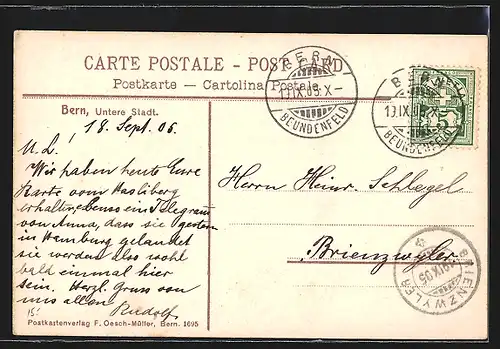 CARTE POSTALE - POST CARD
Postkarte — Cartolina Postale
BERN
19.IX.05.X-
BEUNDENFELD
BERN
19.IX.05.X-
BEUNDENFELD
5
Bern, Untere Stadt.
18. Sept. 05.
M. L.!
Wir haben heute Eure
Karte vom Hasliberg
erhalten, ebenso ein Telegramm
von Anna, dass sie gestern
in Hamburg gelandet
sie werden also wohl
bald einmal hier
sein. Herzl. Gruss von
uns allen
Rudolf.
Herrn Heinr. Schlegel
Brienzwyler
BRIENZWYLER
IX.05
Postkartenverlag F. Oesch-Müller, Bern. 1695